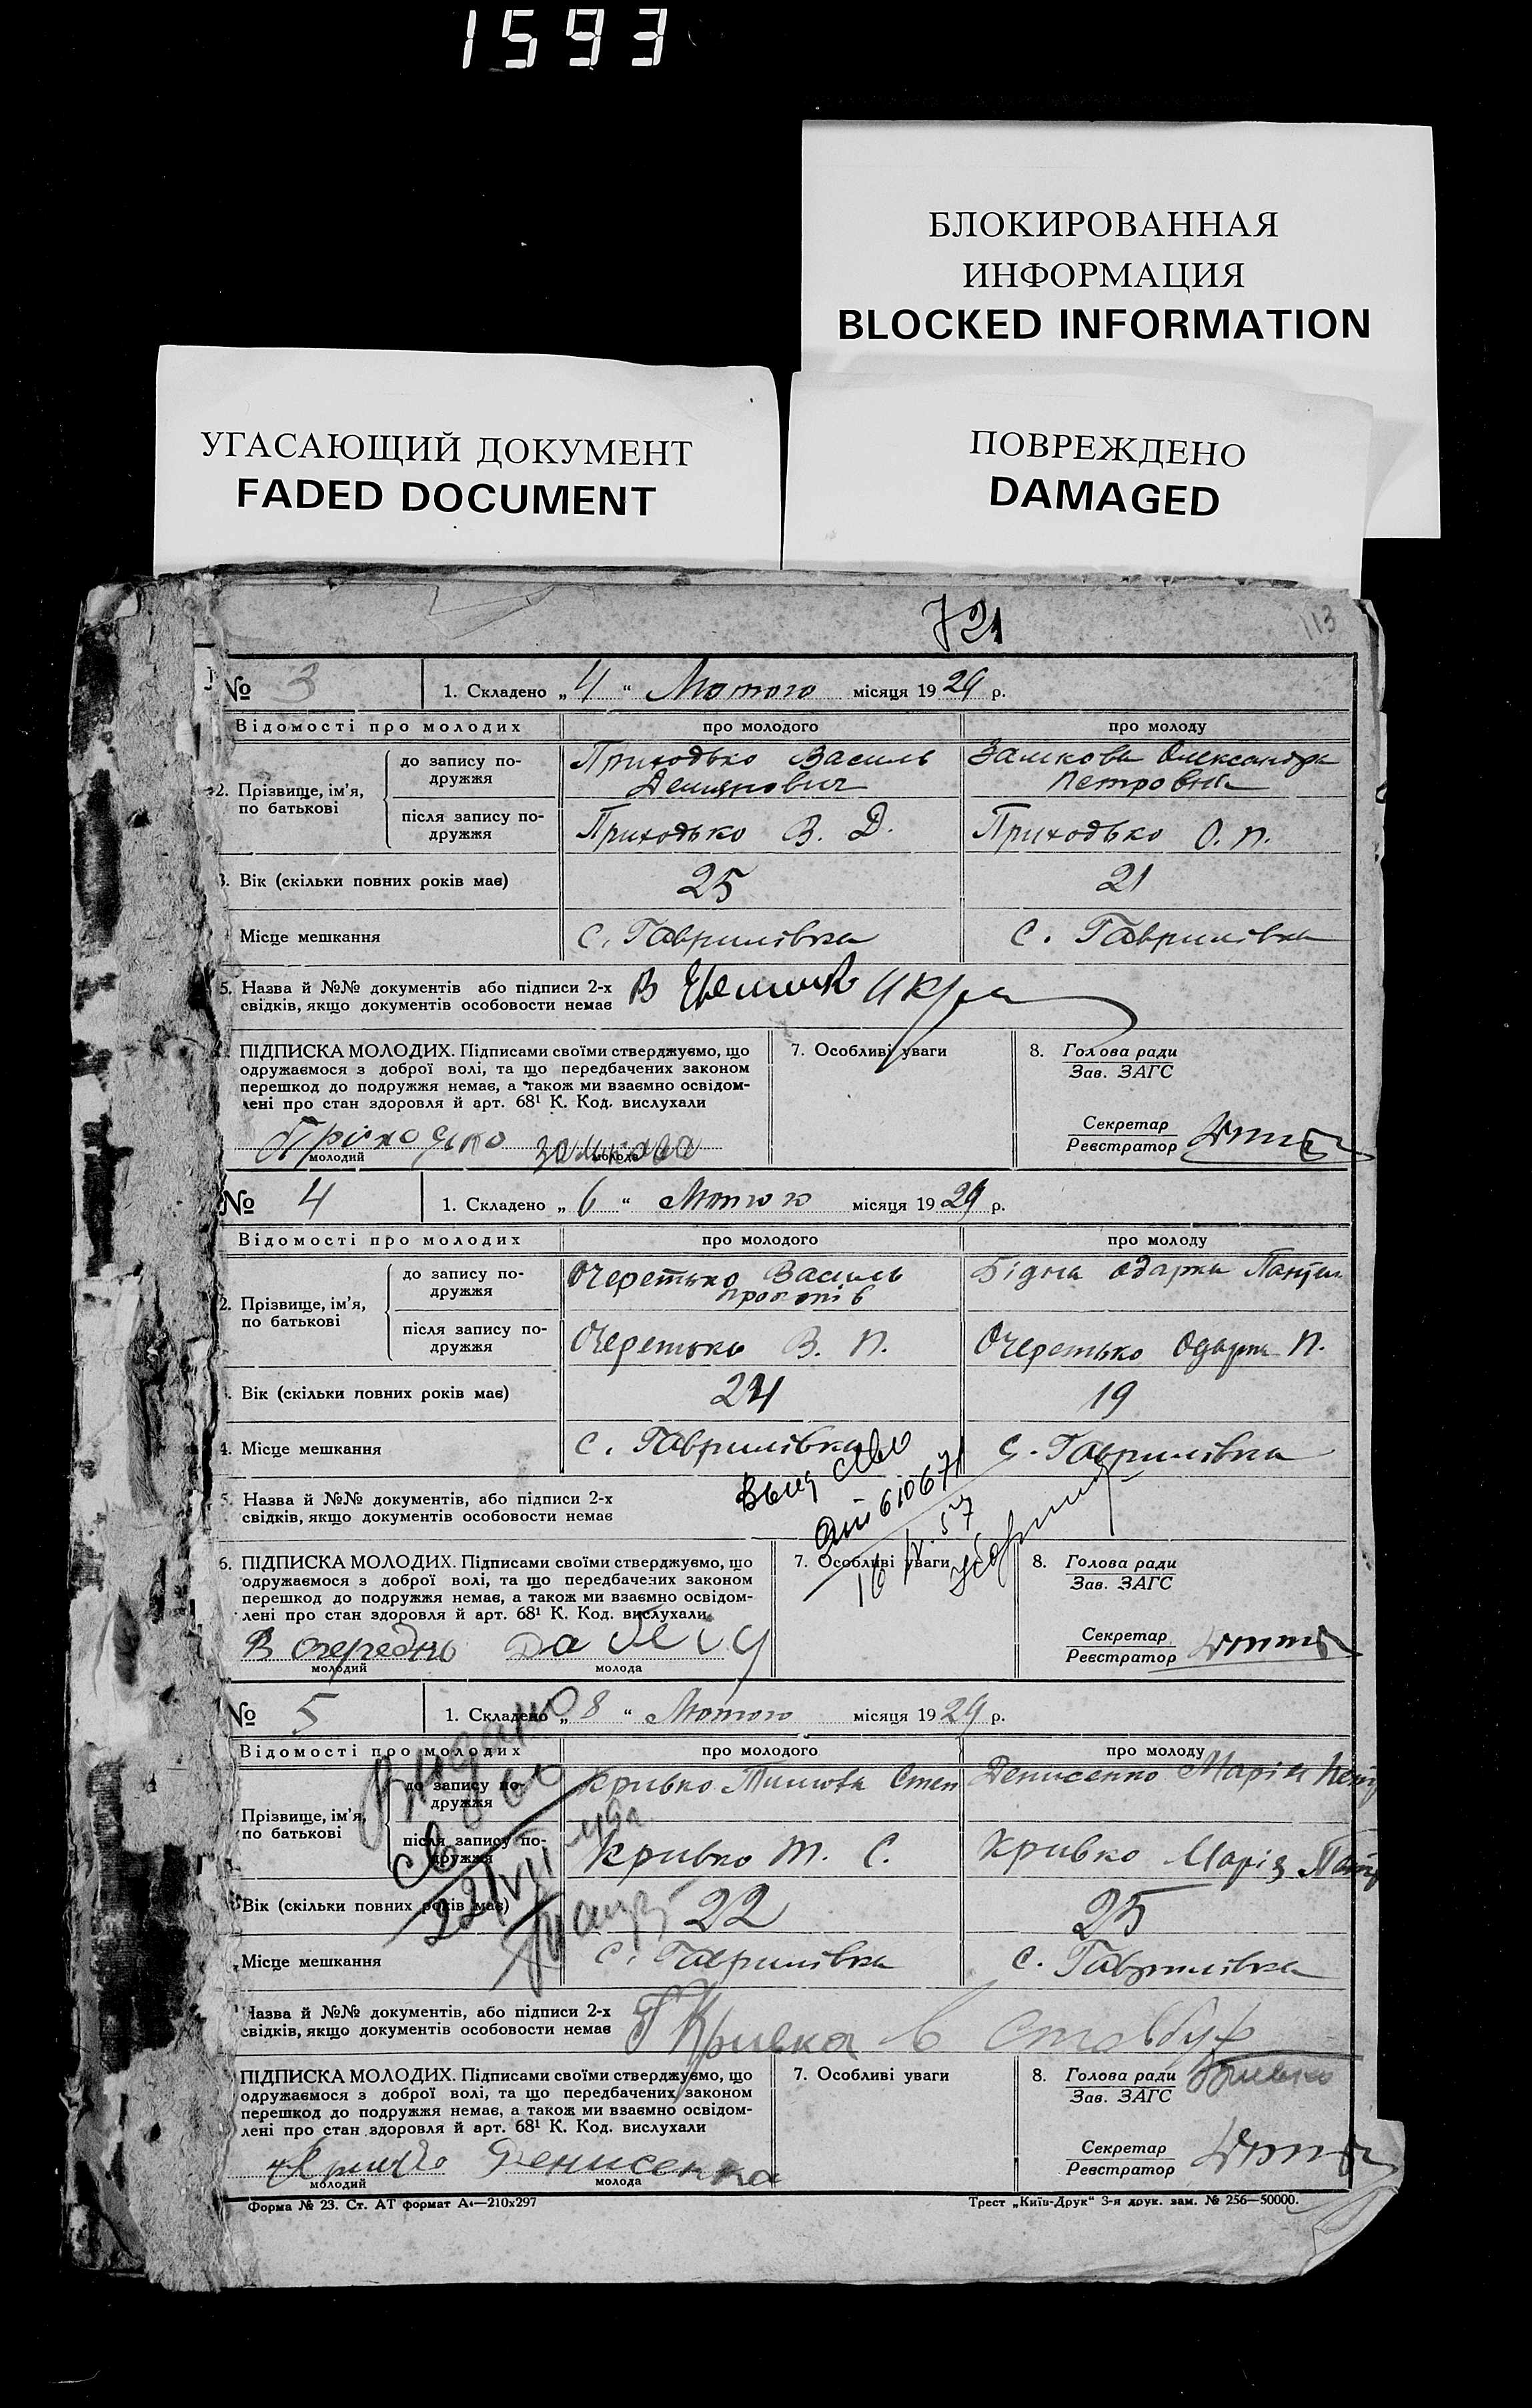 1593
БЛОКИРОВАННАЯ
ИНФОРМАЦИЯ
BLOCKED INFORMATION
УГАСАЮЩИЙ ДОКУМЕНТ
FADED DOCUMENT
ПОВРЕЖДЕНО
DAMAGED
721
113
№ 3 1. Складено „4“ Лютого місяця 1929 р.
Відомості про молодих про молодого про молоду
2. Прізвище, ім'я, по батькові
до запису по-
дружжя
Приходько Василь
Демянович
Замкова Олександра
Петровна
після запису по-
дружжя
Приходько В. Д.
Приходько О. П.
3. Вік (скільки повних років має) 25 21
Місце мешкання с. Гаврилівка с. Гаврилівка
5. Назва й №№ документів або підписи 2-х
свідків, якщо документів особовости немає
ПІДПИСКА МОЛОДИХ. Підписами своїми стверджуємо, що
одружаємося з доброї волі, та що передбачених законом
перешкод до подружжя немає, а також ми взаємно освідом-
лені про стан здоровля й арт. 68¹ К. Код. вислухали
Пріходько Замкова
молодий молода
7. Особливі уваги
8. Голова ради
Зав. ЗАГС
Секретар
Реєстратор
№ 4 1. Складено „6“ Лютого місяця 1929 р.
Відомості про молодих про молодого про молоду
2. Прізвище, ім'я,
по батькові
до запису по-
дружжя
Очеретько Василь
Прокопів
Бідна Одарка Пантел
після запису по-
дружжя
Очеретько В. П.
Очеретько Одарка П.
Вік (скільки повних років має) 24 19
4. Місце мешкання с. Гаврилівка с. Гаврилівка
5. Назва й №№ документів, або підписи 2-х
свідків, якщо документів особовости немає
610671
6. ПІДПИСКА МОЛОДИХ. Підписами своїми стверджуємо, що
одружаємося з доброї волі, та що передбачених законом
перешкод до подружжя немає, а також ми взаємно освідом-
лені про стан здоровля й арт. 68¹ К. Код. вислухали
молодий молода
7. Особливі уваги
8. Голова ради
Зав. ЗАГС
Секретар
Реєстратор
№ 5 1. Складено „8“ Лютого місяця 1929 р.
Відомості про молодих про молодого про молоду
Прізвище, ім'я,
по батькові
до запису по-
дружжя
Кривко Тимофі Степ
Денисенко Марія Петр
після запису по-
дружжя
Кривко Т. С.
Кривко Марія
Видано
св
22/VII
Вік (скільки повних років має) 22 25
Місце мешкання с. Гаврилівка с. Гаврилівка
Назва й №№ документів, або підписи 2-х
свідків, якщо документів особовости немає
ПІДПИСКА МОЛОДИХ. Підписами своїми стверджуємо, що
одружаємося з доброї волі, та що передбачених законом
перешкод до подружжя немає, а також ми взаємно освідом-
лені про стан здоровля й арт. 68¹ К. Код. вислухали
Кривко Денисенка
молодий молода
7. Особливі уваги
8. Голова ради
Зав. ЗАГС
Секретар
Реєстратор
Форма № 23. Ст. АТ формат А4—210х297
Трест „Київ-Друк“ 3-я друк. зам. № 256—50000.